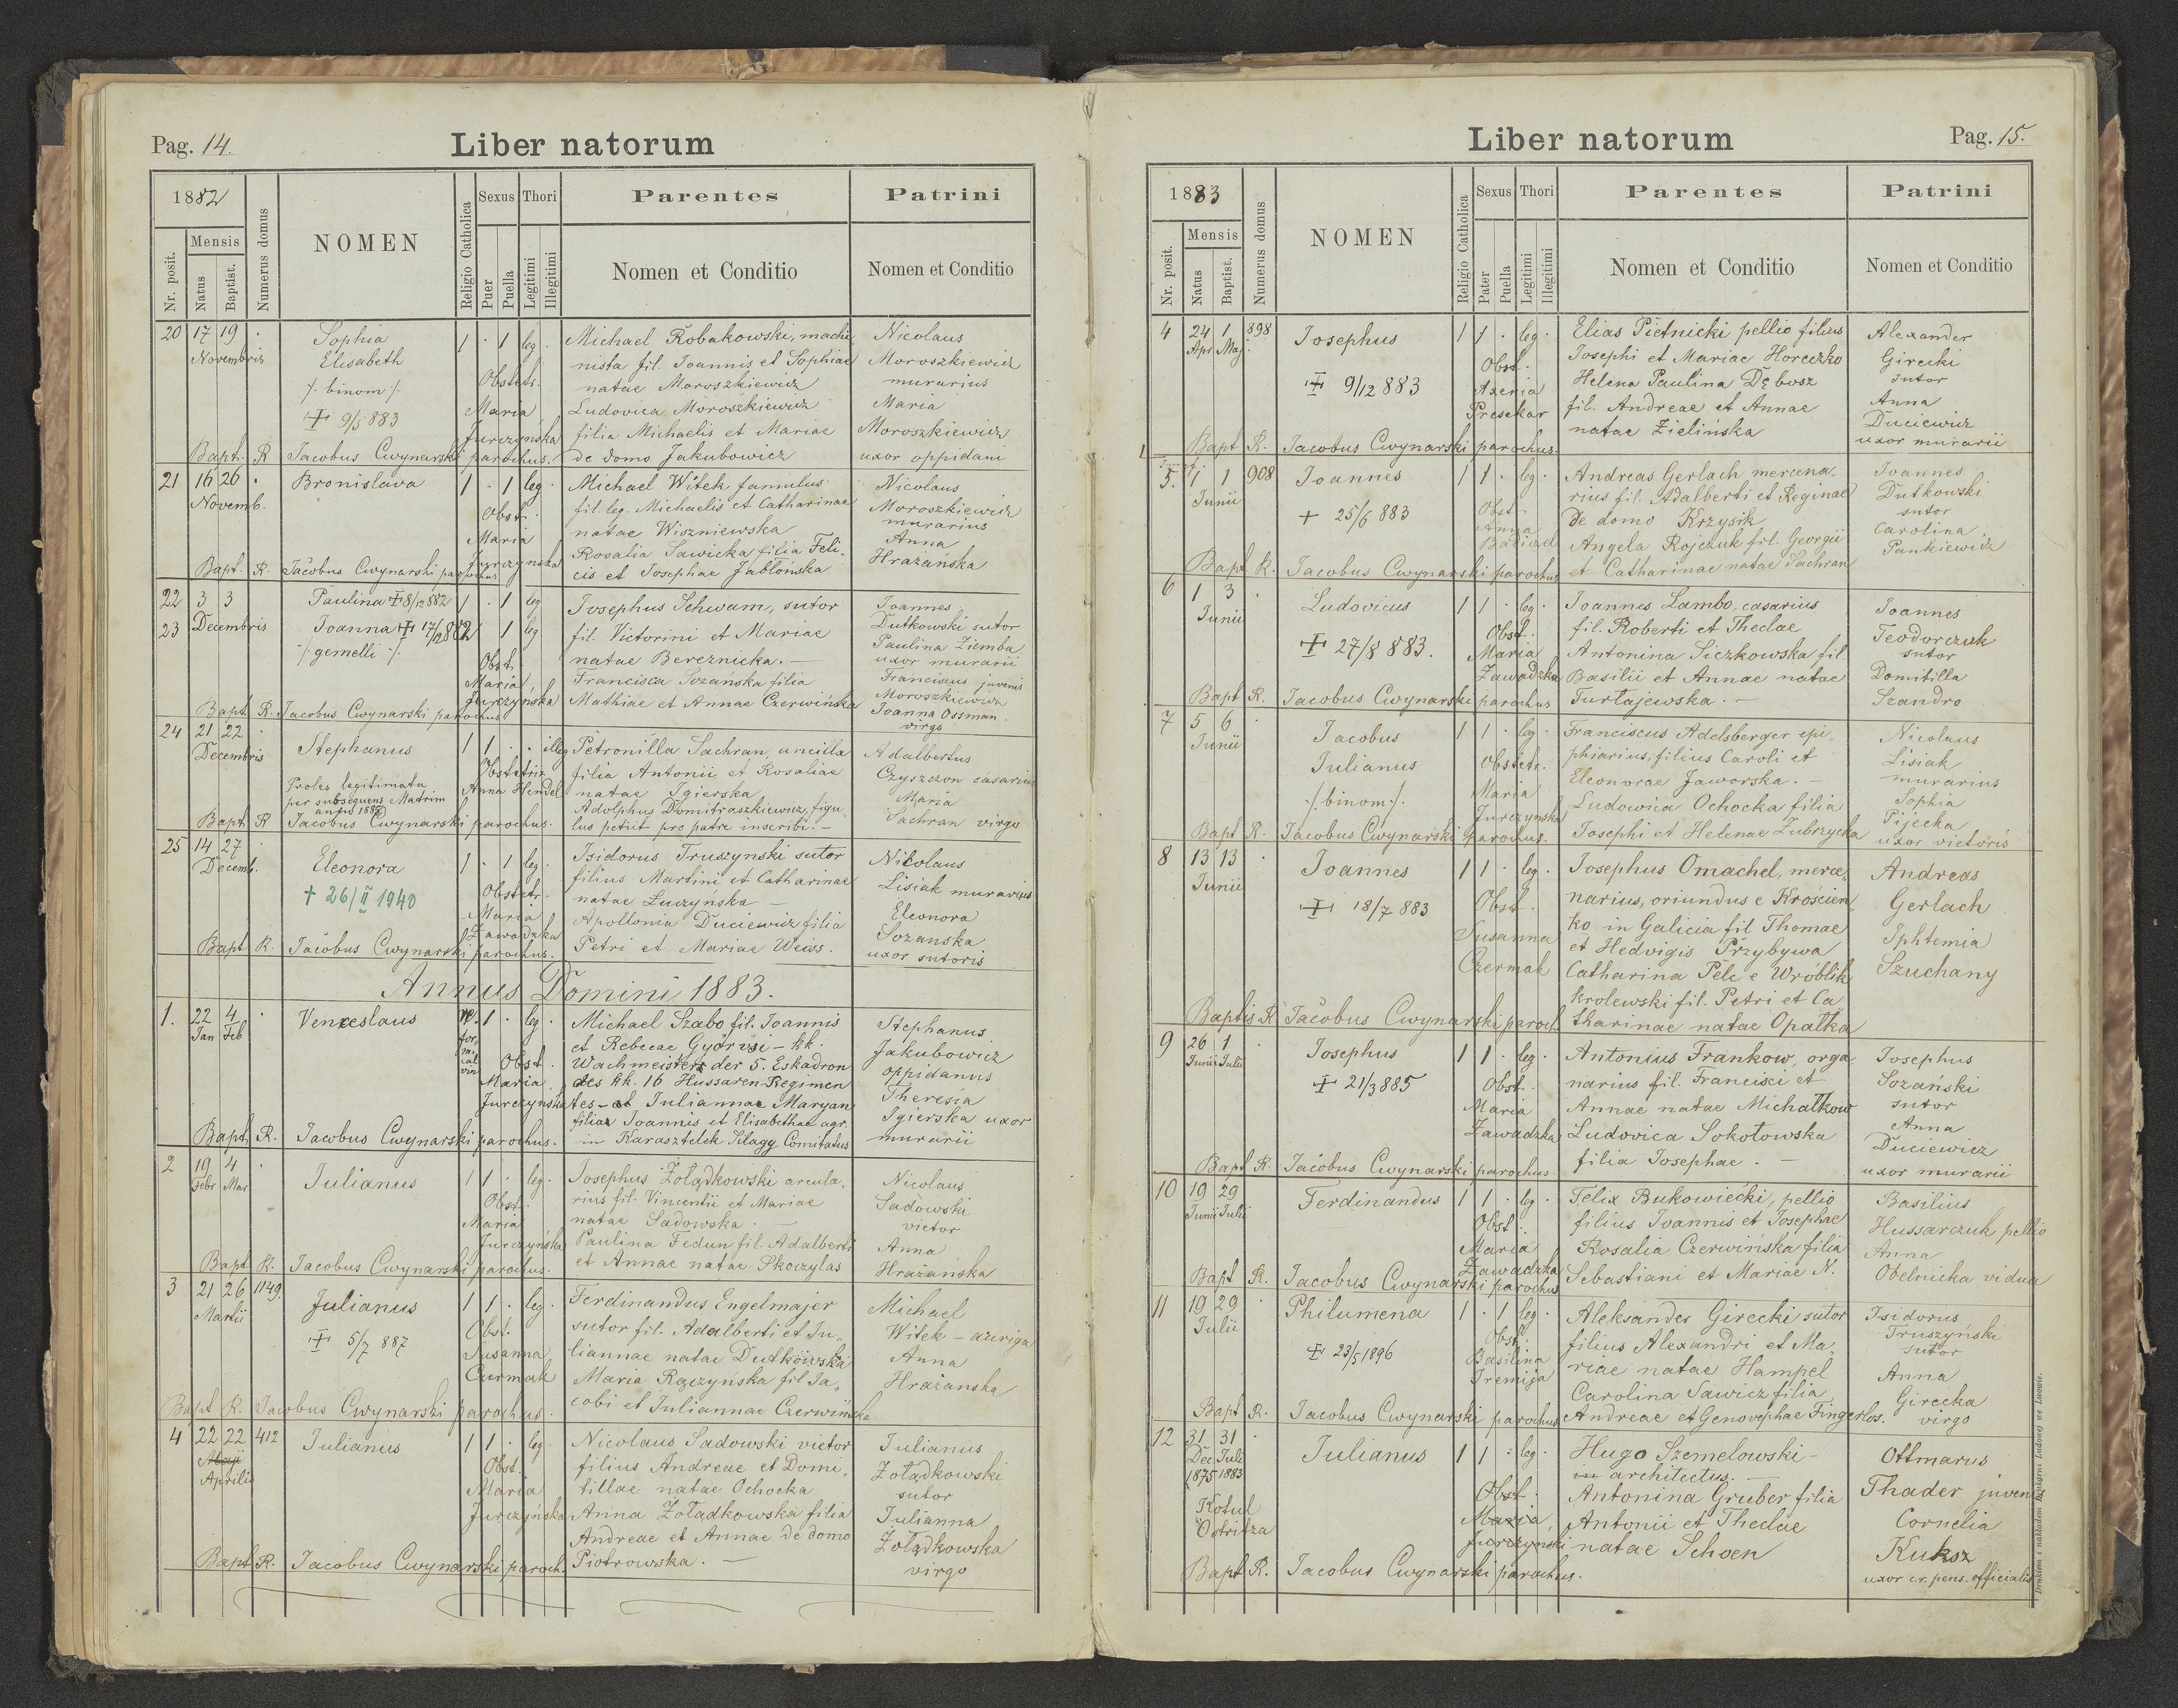 Pag. 14.
Liber natorum
1882
Nr. posit.
Mensis
Natus
Baptist.
Numerus domus
NOMEN
Religio Catholica
Sexus
Puer
Puella
Thori
Legitimi
Illegitimi
Parentes
Nomen et Conditio
Patrini
Nomen et Conditio
20 17 19 ·
Novembris
Sophia
Elisabeth
/: binom :/
9/5 883
1 · 1 leg ·
Obstetr.
Maria
Jurczyńska
Michael Robakowski, machi
nista fil. Joannis et Sophiae
natae Moroszkiewicz
Ludovica Moroszkiewicz
filia Michaelis et Mariae
de domo Jakubowicz
Nicolaus
Moroszkiewicz
murarius
Maria
Moroszkiewicz
uxor oppidani
Bapt. R Jacobus Cwynarski parochus.
21 16 26 ·
Novemb.
Bronislava
1 · 1 leg ·
Obst.
Maria
Jurczyńska
Michael Witek famulus
fil. leg. Michaelis et Catharinae
natae Wiszniewska
Rosalia Sawicka filia Feli-
cis et Josephae Jabłońska
Nicolaus
Moroszkiewicz
murarius
Anna
Hrażańska
Bapt. R. Jacobus Cwynarski parochus
22 3 3
23 Decembris
Paulina 8/12 882
Joanna 17/12 882
/: gemelli :/
1 · 1 leg
1 leg
Obst.
Maria
Jurczyńska
Josephus Schwam, sutor
fil. Victorini et Mariae
natae Bereznicka. —
Francisca Sozańska filia
Mathiae et Annae Czerwińska
Joannes
Dutkowski sutor
Paulina Ziemba
uxor murarii
Franciscus juvenis
Moroszkiewicz
Joanna Ossman
virgo
Bapt. R. Jacobus Cwynarski parochus
24 21 22 ·
Decembris
Stephanus
Proles legitimata
per subsequens Matrim
anno 1886
1 1 · · illeg
Obstetrix
Anna Hendel
Petronilla Sachran, ancilla
filia Antonii et Rosaliae
natae Sgierska
Adolphus Domitraszkiewicz, figu
lus petiit pro patre inscribi. —
Adalbertus
Czyszczon casarius
Maria
Sachran virgo
Bapt. R Jacobus Cwynarski parochus.
25 14 27 ·
Decemb.
Eleonora
† 26/II 1940
1 · 1 leg ·
Obstetr.
Maria
Zawadzka
Isidorus Truszynski sutor
filius Martini et Catharinae
natae Łuczyńska —
Apollonia Duciewicz filia
Petri et Mariae Weiss.
Nicolaus
Lisiak murarius
Eleonora
Sozanska
uxor sutoris
Bapt R. Jacobus Cwynarski parochus.
Annus Domini 1883.
1. 22 4 ·
Jan Feb
Venceslaus
1 · leg ·
Obst.
Maria
Jurczyńska
Michael Szabo fil. Joannis
et Rebecae Györvi – kk.
Wachmeister der 5. Eskadron
des kk. 16 Hussaren-Regimen
tes – et Juliannae Maryan
filiae Joannis et Elisabethae agr.
in Karasztelek Silagy Comitatus
Stephanus
Jakubowicz
oppidanus
Theresia
Sgierska uxor
murarii
Bapt. R. Jacobus Cwynarski parochus.
2 19 4 ·
Febr Mar
Julianus
1 1 · leg ·
Obst.
Maria
Jurczyńska
Josephus Żołądkowski arcula-
rius fil. Vincentii et Mariae
natae Sadowska. —
Paulina Fedun fil. Adalberti
et Annae natae Skoczylas
Nicolaus
Sadowski
vietor
Anna
Hrażańska
Bapt R. Jacobus Cwynarski parochus.
3 21 26 1149.
Martii
Julianus
5/7 887
1 1 · leg ·
Obst.
Susanna
Czermak
Ferdinandus Engelmajer
sutor fil. Adalberti et Ju-
liannae natae Dutkowska
Maria Rączyńska fil Ja-
cobi et Juliannae Czerwińska
Michael
Witek – auriga
Anna
Hrażanska
Bapt R. Jacobus Cwynarski parochus.
4 22 22 412
Aprilis
Julianus
1 1 · leg ·
Obst.
Maria
Jurczyńska
Nicolaus Sadowski vietor
filius Andreae et Domi-
tillae natae Ochocka
Anna Żoładkowska filia
Andreae et Annae de domo
Piotrowska. —
Julianus
Żołądkowski
sutor
Julianna
Żołądkowska
virgo
Bapt R. Jacobus Cwynarski paroch.
Liber natorum
Pag. 15.
1883
Nr. posit.
Mensis
Natus
Baptist.
Numerus domus
NOMEN
Religio Catholica
Sexus
Pater
Puella
Thori
Legitimi
Illegitimi
Parentes
Nomen et Conditio
Patrini
Nomen et Conditio
4 24 1 898
Apr Maj.
Josephus
9/12 883
1 1 · leg ·
Obst.
Axenia
Presekar
Elias Pietnicki pellio filius
Josephi et Mariae Horeczko
Helena Paulina Dębosz
fil. Andreae et Annae
natae Zielińska
Alexander
Girecki
sutor
Anna
Duciewicz
uxor murarii
Bapt R. Jacobus Cwynarski parochus.
5. 1 1 908
Junii
Joannes
+ 25/6 883
1 1 · leg ·
Obst.
Anna
Andreas Gerlach mercena-
rius fil. Adalberti et Reginae
de domo Krzysik
Angela Rojczuk fil. Georgii
et Catharinae natae Sachran
Joannes
Dutkowski
sutor
Carolina
Pankiewicz
Bapt R. Jacobus Cwynarski parochus
6 1 3 ·
Junii
Ludovicus
27/8 883.
1 1 · leg ·
Obst.
Maria
Zawadzka
Joannes Lambo, casarius
fil. Roberti et Theclae
Antonina Siczkowska fil
Basilii et Annae natae
Turtajewska. —
Joannes
Teodorczuk
sutor
Domitilla
Szandro
Bapt R. Jacobus Cwynarski parochus
7 5 6 ·
Junii
Jacobus
Julianus
/: binom :/
1 1 · leg ·
Obstetr.
Maria
Jurczyńska
Franciscus Adelsberger epi-
phiarius, filius Caroli et
Eleonorae Jaworska. —
Ludowica Ochocka filia
Josephi et Helenae Zubrzycka
Nicolaus
Lisiak
murarius
Sophia
Pijecka
uxor vietoris
Bapt R. Jacobus Cwynarski parochus.
8 13 13 ·
Junii
Joannes
18/7 883
1 1 · leg ·
Obst.
Susanna
Czermak
Josephus Omachel, merce-
narius, oriundus e Krościen
ko in Galicia fil Thomae
et Hedvigis Przybywa
Catharina Pelc e Wróblik
krolewski fil. Petri et Ca
tharinae natae Opałka
Andreas
Gerlach
Iphtemia
Szuchany
Baptis. R Jacobus Cwynarski paroch.
9 26 1 ·
Junii Julii
Josephus
21/3 885
1 1 · leg ·
Obst.
Maria
Zawadzka
Antonius Frankow, orga
narius fil. Francisci et
Annae natae Michałkow
Ludovica Sokołowska
filia Josephae. —
Josephus
Sozański
sutor
Anna
Duciewicz
uxor murarii
Bapt R. Jacobus Cwynarski parochus
10 19 29
Junii Julii
Ferdinandus
1 1 · leg ·
Obst.
Maria
Zawadzka
Felix Bukowiecki, pellio
filius Joannis et Josephae
Rosalia Czerwińska filia
Sebastiani et Mariae N.
Basilius
Hussarczuk pellio
Anna
Obelnicka vidua
Bapt R. Jacobus Cwynarski parochus
11 19 29 ·
Julii
Philumena
23/5 1896
1 · 1 leg ·
Obst.
Basilina
Jremija
Aleksandes Girecki sutor
filius Alexandri et Ma-
riae natae Hampel
Carolina Sawicz filia
Andreae et Genovephae Fingerlos.
Isidorus
Truszyński
sutor
Anna
Girecka
virgo
Bapt R. Jacobus Cwynarski parochus
12 31 31 ·
Dec Juli
1875 1883
Kotul
Ostritza
Julianus
1 1 · leg ·
Obst.
Maria
Jurczyński
Hugo Szemelowski –
architectus. —
Antonina Gruber filia
Antonii et Theclae
natae Schoen
Ottmarus
Thader juvenis
Cornelia
Kuksz
uxor c.r. pens. officialis
Bapt R. Jacobus Cwynarski parochus.
Drukiem i nakładem Drukarni Ludowej we Lwowie.